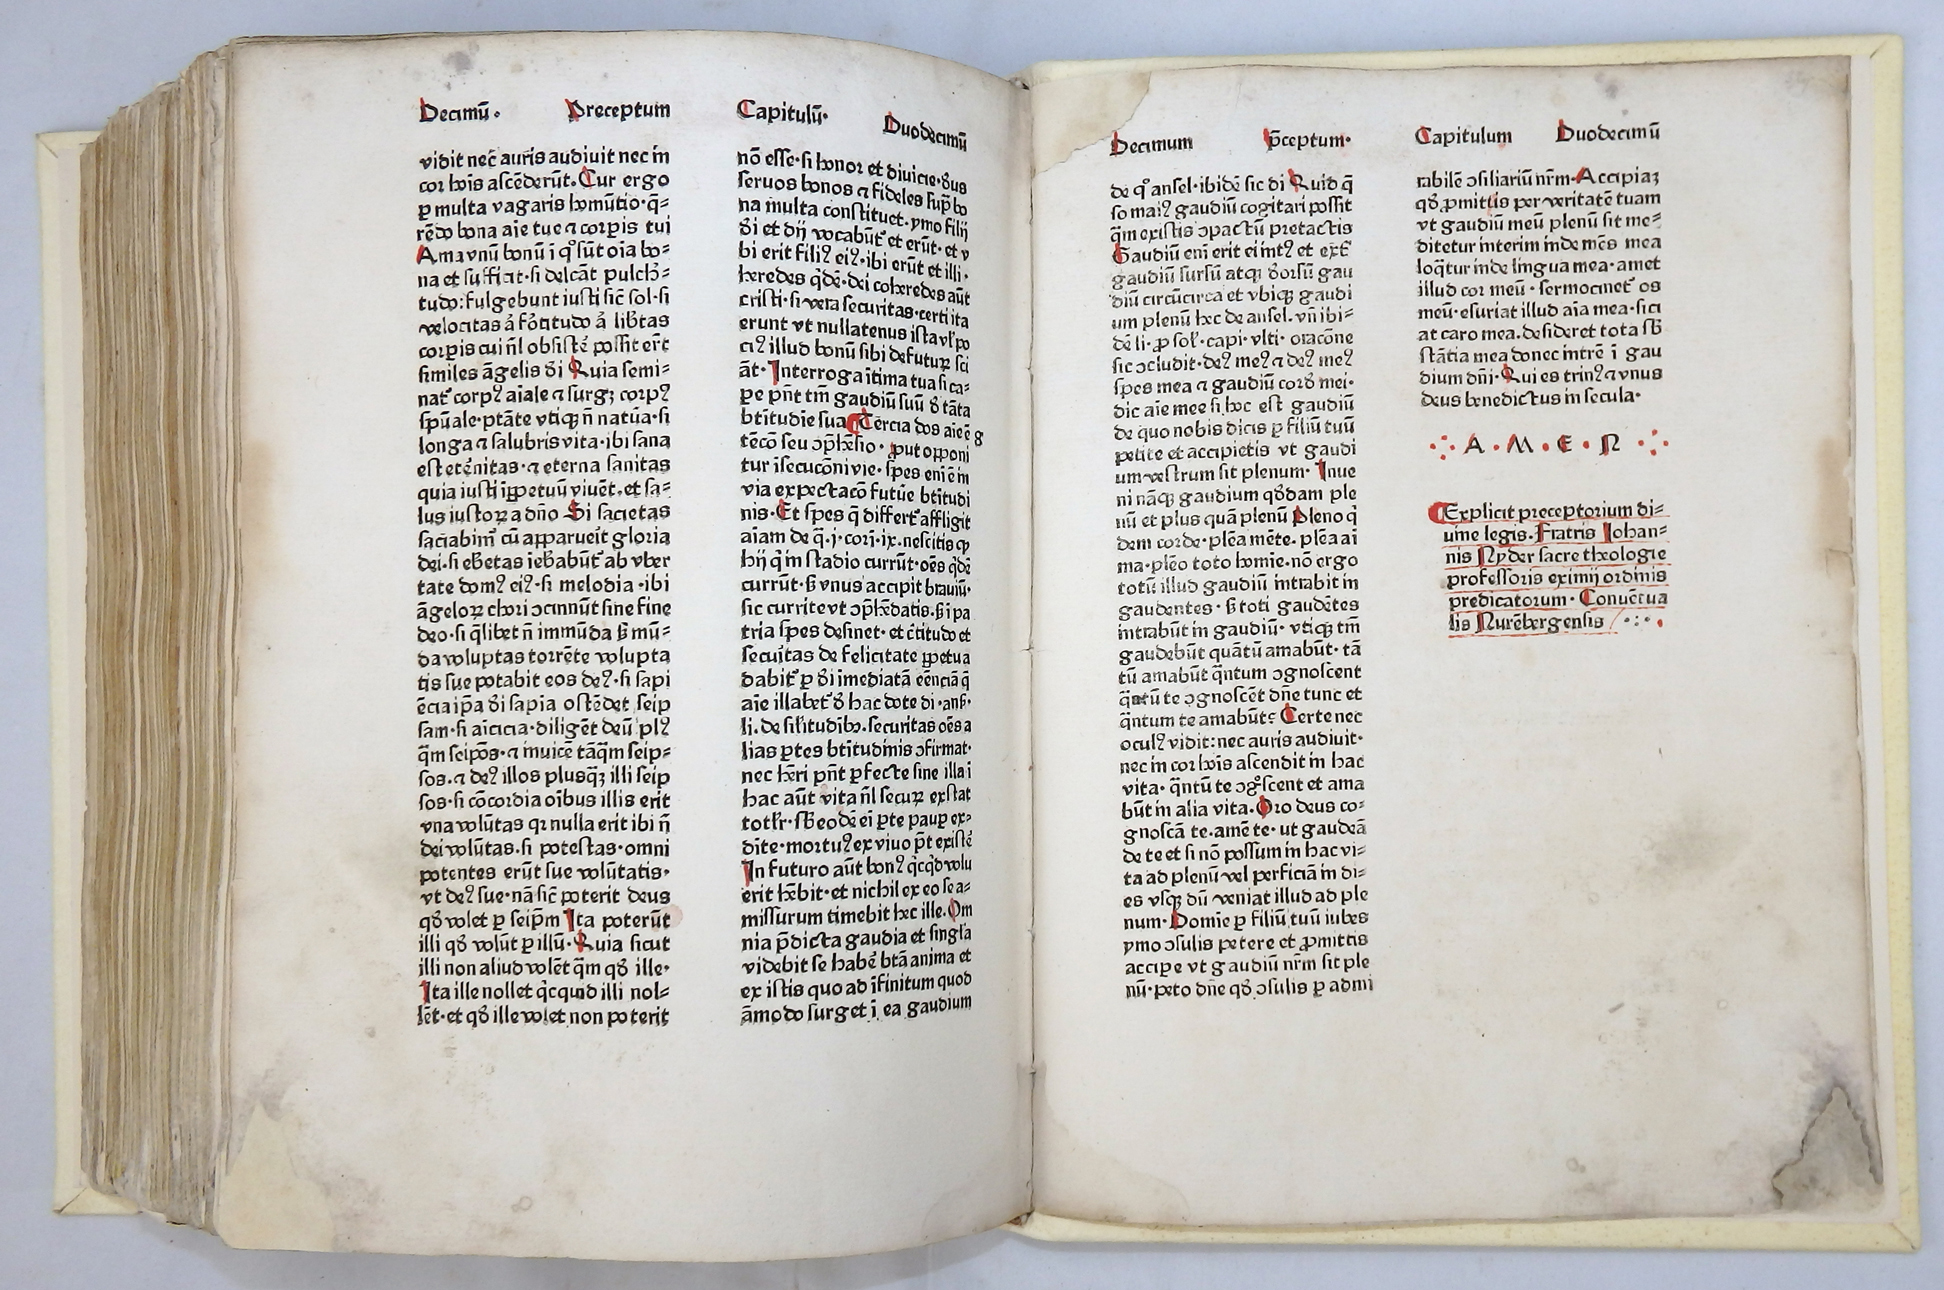 Decimū. Preceptum
vidit nec̄ auris audiuit nec in
cor hois ascēderūt. Cur ergo
ꝑ multa vagaris homūtio. q̄=
rēdo bona aīe tue ⁊ corpis tui
Ama vnū bonū ī qͦ sūt oīa bo=
na et sufficit. si delcāt pulch̄=
tudo: fulgebunt iusti sic̄ sol. si
velocitas ā fōtitudo ā libt̄as
corpis cui nl̄ obsistē possit er̄t
similes āgelis ꝺi Quia semi=
nat᷑ corpꝰ aīale ⁊ surgꝫ corpꝰ
spūale. ptāte vtiqꝫ n̄ natūa. si
longa ⁊ salubris vita. ibi sana
est etēnitas. ⁊ eterna sanitas
quia iusti īꝑpetuū viuēt. et sa=
lus iustoꝝ a dn̄o Si sacietas
saciabim᷑ cū apparueīt gloria
dei. si eb̄etas īeb̄abūt᷑ ab vber
tate domꝰ eiꝰ. si melodia. ibi
āgeloꝝ chori ↄcinnūt sine fine
deo. si q̄libet n̄ immūda sꝫ mū=
da voluptas torrēte volupta
tis sue potabit eos deꝰ. si sapi
ēcia ip̄a ꝺi sapia ostēdet seip
sam. si aīcicia. diligēt deū plꝰ
q̄m seipōs. ⁊ inuicē tāq̄m seip=
sos. ⁊ deꝰ illos plusq̄ꝫ illi seip
sos. si cōcordia oībus illis erit
vna volūtas qꝛ nulla erit ibi n̄
dei volūtas. si potestas. omni
potentes erūt sue volūtatis.
vt deꝰ sue. nā sic̄ poterit deus
qꝺ volet ꝑ seip̄m Ita poterūt
illi qꝺ volūt ꝑ illū. Quia sicut
illi non aliud volēt q̄m qꝺ ille.
Ita ille nollet q̄cquid illi nol=
lēt. et qꝺ ille volet non poterit
Capitulū. Duodecimū
nō esse. si honor et diuicie. ꝺus
seruos bonos ⁊ fideles sup̄ bo
na multa constituet. ymo filij
ꝺi et dij vocabūt᷑ et erūt. et v
bi erit filiꝰ eiꝰ. ibi erūt et illi.
heredes q̄dē. dei coheredes aūt
cristi. si vera securitas. certi ita
erunt vt nullatenus ista vl̄ po
ciꝰ illud bonū sibi defutuꝝ sci
āt. Interroga ītima tua si ca=
pe pn̄t tm̄ gaudiū suū ꝺ tāta
btītudīe sua Tercia dos aīe ē g
tēcō seu ↄp̄hēsio. ꝓut opponi
tur īsecucōni vie. spes eni ē in
via expectacō futūe btītudi
nis. Et spes q̄ differt᷑ affligit
aīam de q̄. j. cori. ix. nescitis qꝫ
hij q̄ in stadio currūt. oēs q̄dē
currūt. sꝫ vnus accipit brauiū.
sic currite vt ↄp̄hēdatis. sꝫ ī pa
tria spes desinet. et c̄titudo et
secuītas de felicitate ꝑpetua
dabit᷑ ꝑ ꝺi imediatā eēnciā q̄
aīe illabet᷑ ꝺ hac dote di. ans̄.
li. de sil̄itudibꝰ. securitas oēs a
lias ꝑtes btītudinis ↄfirmat.
nec h̄eri pn̄t ꝑfecte sine illa i
hac aūt vita nl̄ secuꝝ exstat
totl̄r. sꝫ eodē ei ꝑte pauꝑ ex=
dite. mortuꝰ ex viuo pt̄ existē
In futuro aūt bonꝰ q̄cq̄d volu
erit h̄ebit. et nichil ex eo se a=
missurum timebit hec ille. Om
nia p̄dicta gaudia et singl̄a
videbit se habē btā anima et
ex istis quo ad īfinitum quod
āmodo surget ī ea gaudium
Decimum p̄ceptum.
de qͦ ansel. ibidē sic di Quid q̄
so maiꝰ gaudiū cogitari possit
q̄m existis ↄpactū pretactis
Gaudiū eni erit ei intꝰ et ext᷑
gaudiū sursū atqꝫ ꝺorsū gau
diū circūcirca et vbiqꝫ gaudi
um plenū hec de ansel. vn̄ ibi=
dē li. ꝓsol̄. capi. vlti. oracōne
sic ↄcludit. deꝰ meꝰ ⁊ deꝰ meꝰ
spes mea ⁊ gaudiū corꝺ mei.
dic aīe mee si hoc est gaudiū
de quo nobis dicis ꝑ filiū tuū
petite et accipietis vt gaudi
um vestrum sit plenum. Inue
ni nāqꝫ gaudium qꝺdam ple
nū et plus quā plenū Pleno q̄
dem corde. plēa mēte. plēa ai
ma. plēo toto homie. nō ergo
totū illud gaudiū intrabit in
gaudentes. sꝫ toti gaudētes
intrabūt in gaudiū. vtiqꝫ tm̄
gaudebūt quātū amabūt. tā
tū amabūt q̄ntum ↄgnoscent
q̄ntū te ↄgnoscēt dn̄e tunc et
q̄ntum te amabūt: Certe nec
oculꝰ vidit: nec auris audiuit.
nec in cor hois ascendit in hac
vita. q̄ntū te ↄgͦscent et ama
būt in alia vita. Oro deus co=
gnoscā te. amē te. ut gaudeā
de te et si nō possum in hac vi=
ta ad plenū vel perficiā in di=
es vsqꝫ dū veniat illud ad ple
num. Domīe ꝑ filiū tuū iubes
ymo ↄsulis petere et ꝓmittis
accipe vt gaudiū nr̄m sit ple
nū. peto dn̄e qꝺ ↄsulis ꝑ admi
Capitulum Duodecimū
rabilē ↄsiliariū nr̄m. Accipiaꝫ
qꝺ ꝓmittis per veritatē tuam
vt gaudiū meū plenū sit me=
ditetur interim inde mēs mea
loq̄tur inde lingua mea. amet
illud cor meū. sermocinet᷑ os
meū. esuriat illud aīa mea. sici
at caro mea. desideret tota sꝫ
stātia mea donec intrē ī gau
dium dn̄i. Qui es trinꝰ ⁊ vnus
deus benedictus in secula.
A. M. E. N
Explicit preceptorium di=
uine legis. Fratris Johan=
nis Nyder sacre theologie
professoris eximij ordinis
predicatorum. Conuētua
lis Nurēbergensis